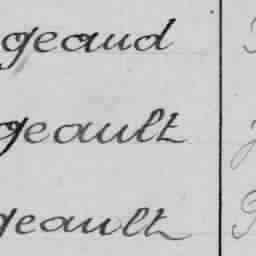 geaud
geault
geault